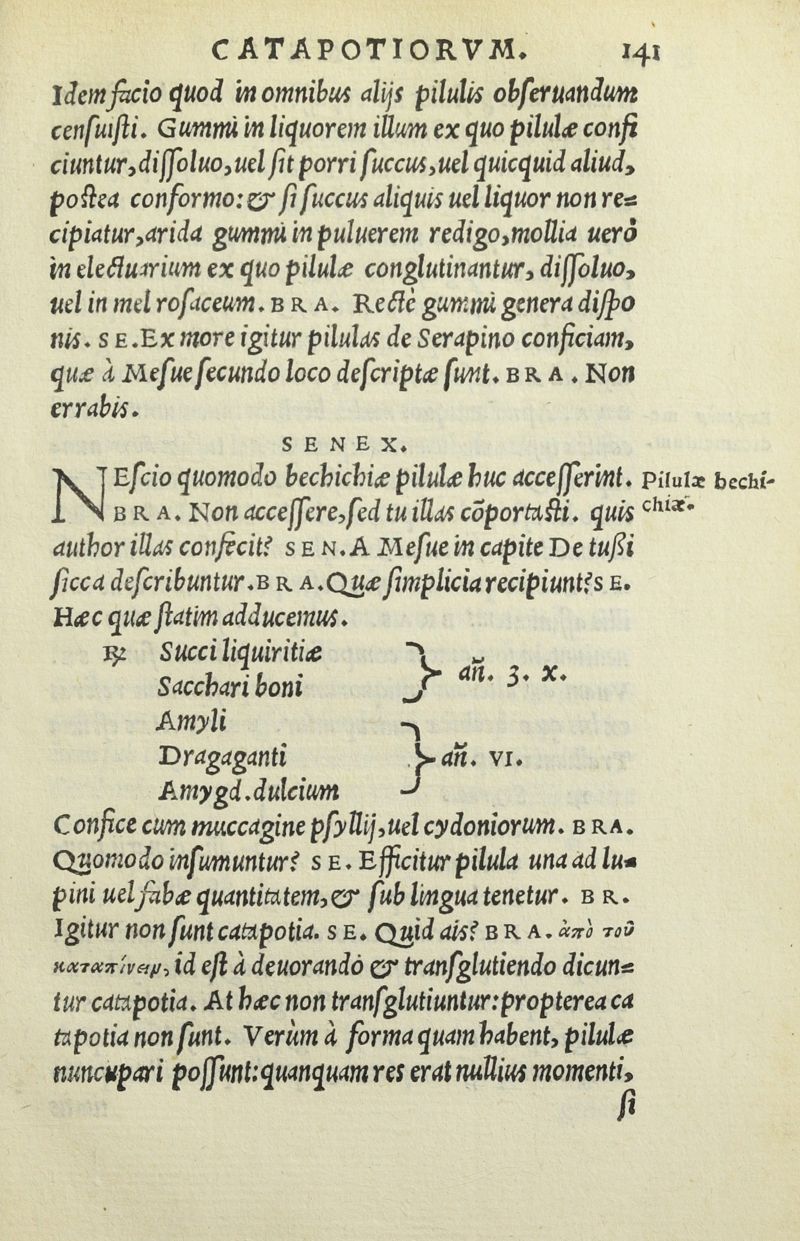 CATAPOTIORVM. 141
Idem facio quod in omnibus alijs pilulis obſeruandum
cenſuiſti. Gummi in liquorem illum ex quo pilulæ confi
ciuntur, diſſoluo, uel ſit porri ſuccus, uel quicquid aliud,
poſtea conformo: & ſi ſuccus aliquis uel liquor non re=
cipiatur, arida gummi in puluerem redigo, mollia uerò
in electuarium ex quo pilulæ conglutinantur, diſſoluo,
uel in mel roſaceum. BRA. Rectè gummi genera diſpo
nis. SE. Ex more igitur pilulas de Serapino conficiam,
quæ à Meſue ſecundo loco deſcriptæ ſunt. BRA. Non
errabis.
SENEX.
NEſcio quomodo bechichiæ pilulæ huc acceſſerint. Pilulæ bechi-
BRA. Non acceſſere, ſed tu illas cōportaſti. quis chiæ.
author illas confecit? SEN. A Meſue in capite De tußi
ſicca deſcribuntur. BRA. Quæ ſimplicia recipiunt? SE.
Hæc quæ ſtatim adducemus.
℞ Succi liquiritiæ
Sacchari boni } an̄. ʒ. x.
Amyli
Dragaganti } an̄. VI.
Amygd. dulcium
Confice cum muccagine pſyllij, uel cydoniorum. BRA.
Quomodo inſumuntur? SE. Efficitur pilula una ad lu=
pini uel fabæ quantitatem, & ſub lingua tenetur. BR.
Igitur non ſunt catapotia. SE. Quid ais? BRA. ἀπὸ τοῦ
καταπίνειν, id eſt à deuorandò & tranſglutiendo dicun=
tur catapotia. At hæc non tranſglutiuntur: propterea ca
tapotia non ſunt. Verùm à forma quam habent, pilulæ
nuncupari poſſunt: quanquam res erat nullius momenti,
ſi